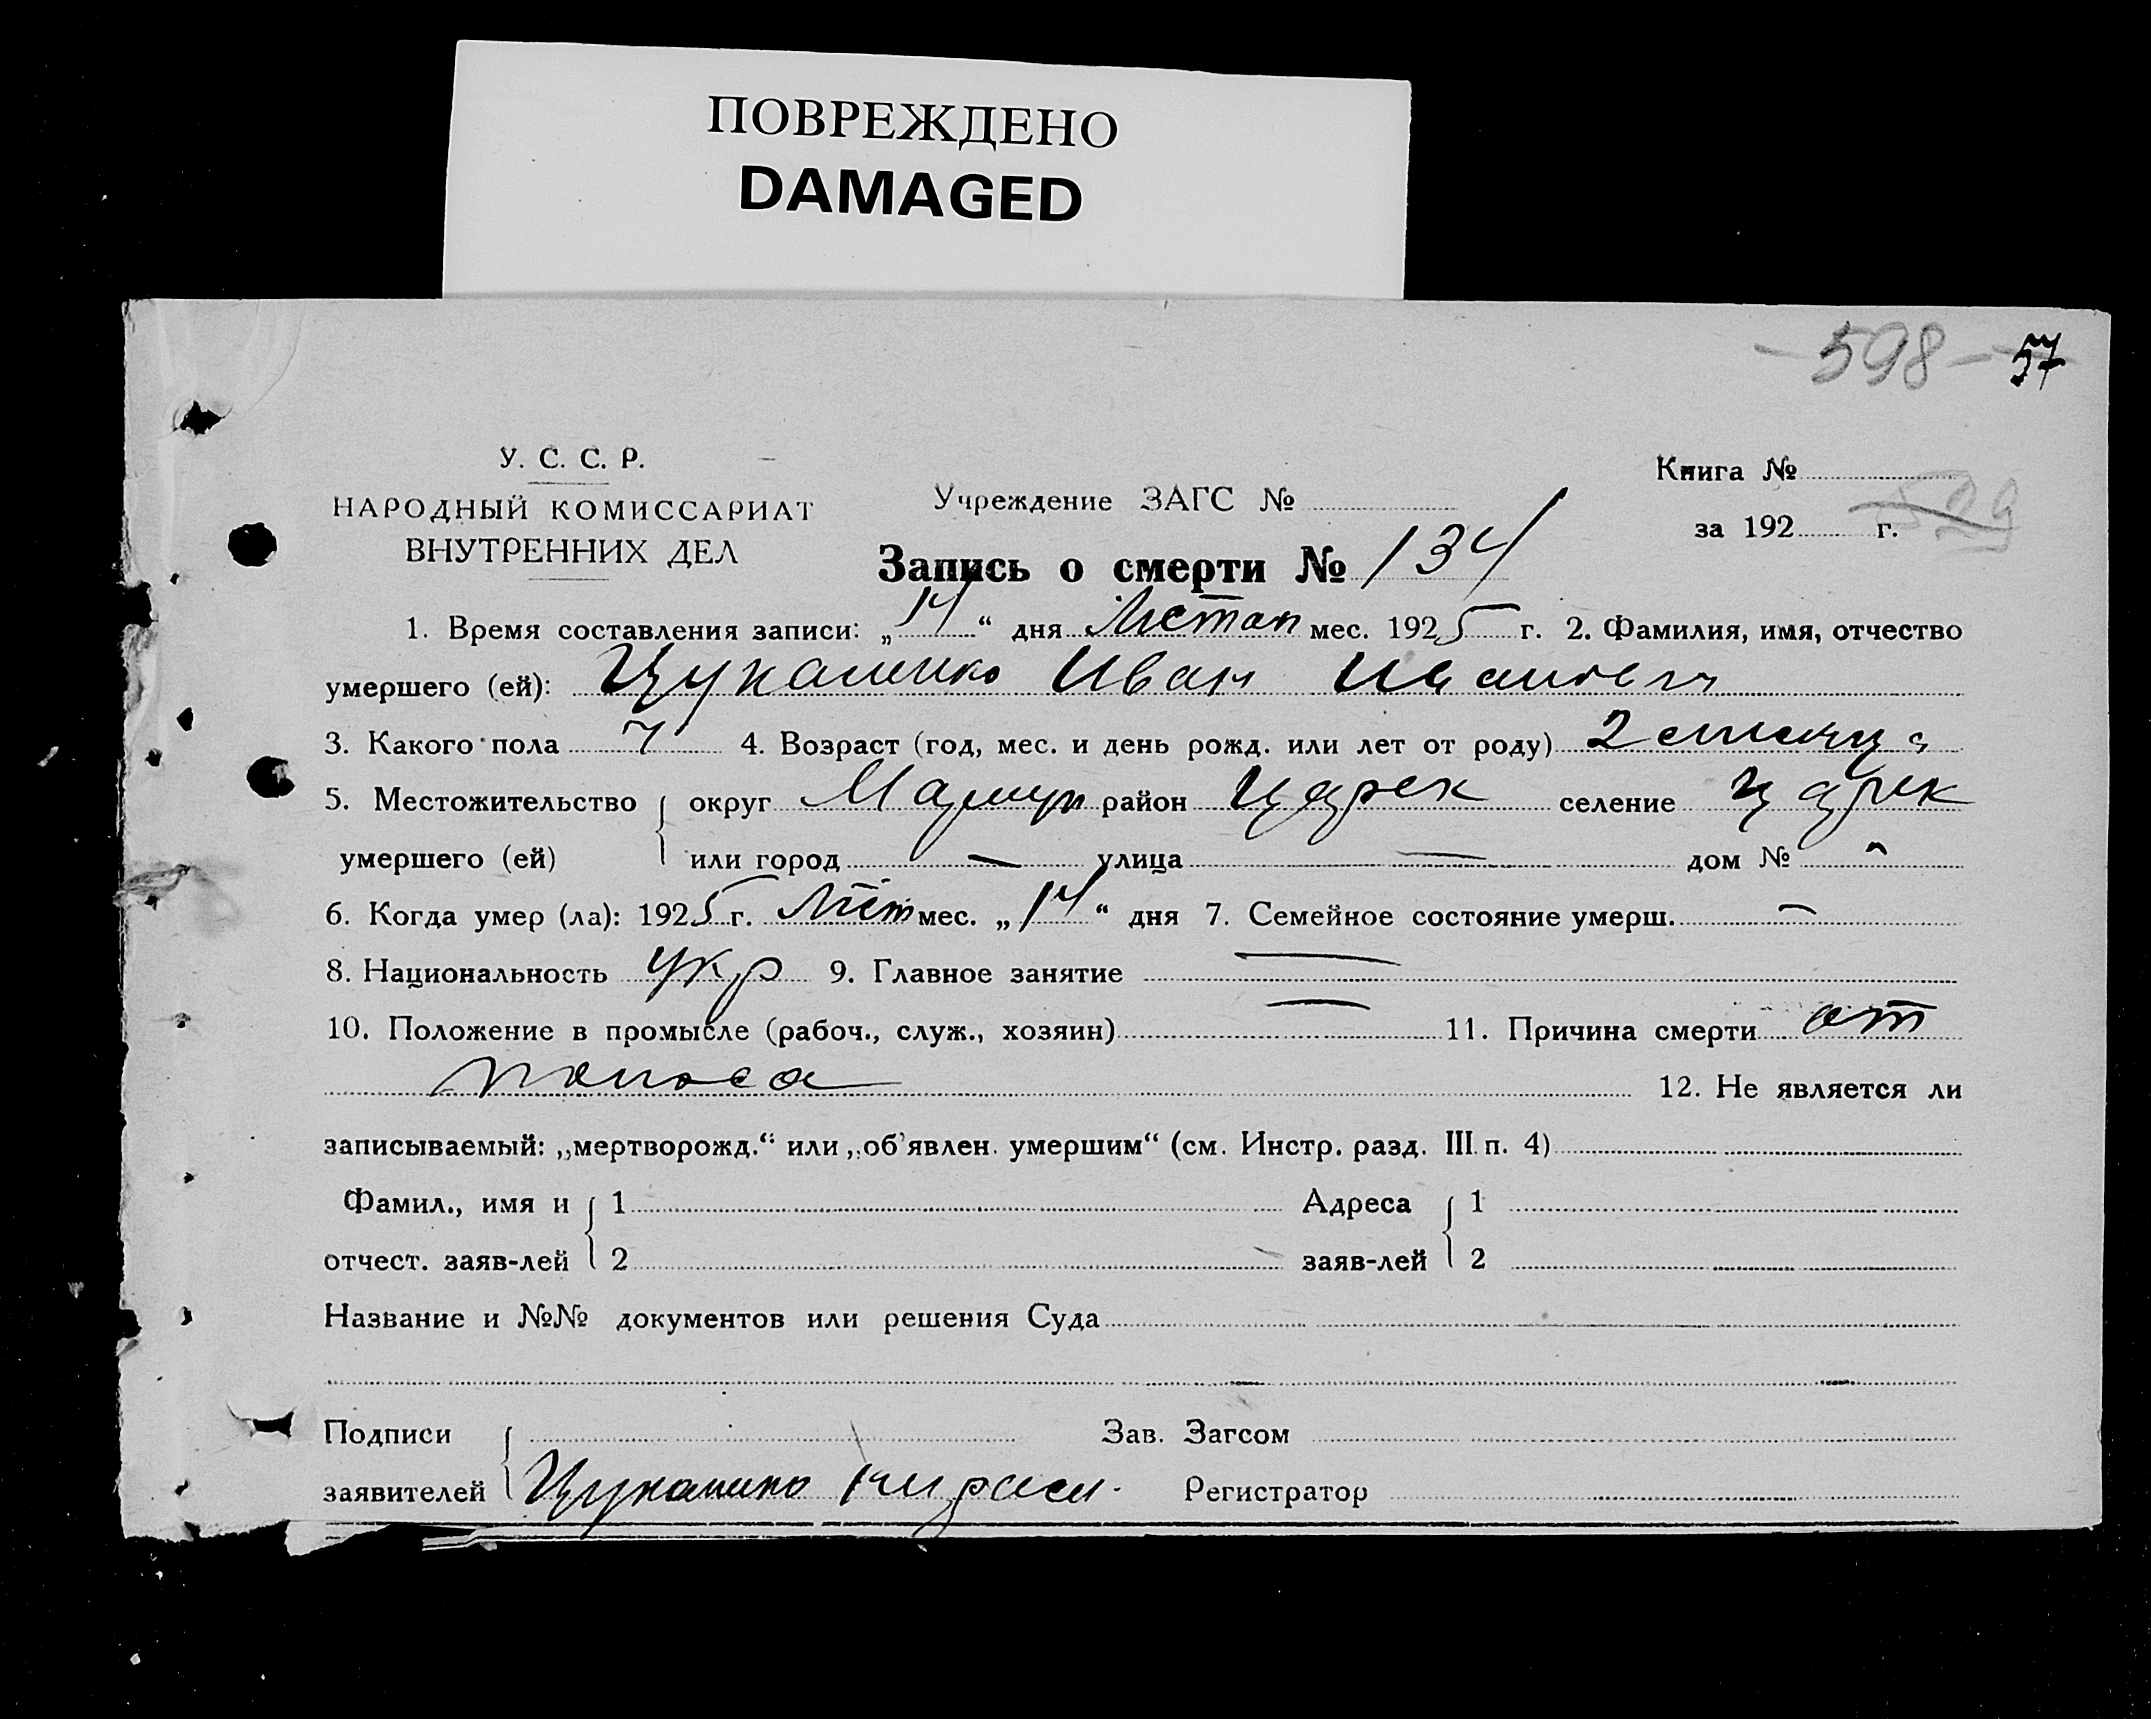 ПОВРЕЖДЕНО
DAMAGED
- 598 - 57
У. С. С. Р.
НАРОДНЫЙ КОМИССАРИАТ
ВНУТРЕННИХ ДЕЛ
Учреждение ЗАГС №
Книга №
за 192 г. 529
Запись о смерти № 134
1. Время составления записи: „14“ дня Листоп мес. 1925 г. 2. Фамилия, имя, отчество
умершего (ей): Цуканенко Иван Иванович
3. Какого пола Ч 4. Возраст (год, мес. и день рожд. или лет от роду) 2
5. Местожительство округ Мариуп район Царек селение Царек
умершего (ей) или город — улица — дом № -
6. Когда умер (ла): 1925 г. Лист мес. „14“ дня 7. Семейное состояние умерш. -
8. Национальность укр 9. Главное занятие —
10. Положение в промысле (рабоч., служ., хозяин) — 11. Причина смерти от
поноса 12. Не является ли
записываемый: „мертворожд.“ или „об'явлен. умершим“ (см. Инстр. разд. III п. 4)
Фамил., имя и 1 Адреса 1
отчест. заяв-лей 2 заяв-лей 2
Название и №№ документов или решения Суда
Подписи Зав. Загсом
заявителей Цуканенко Регистратор